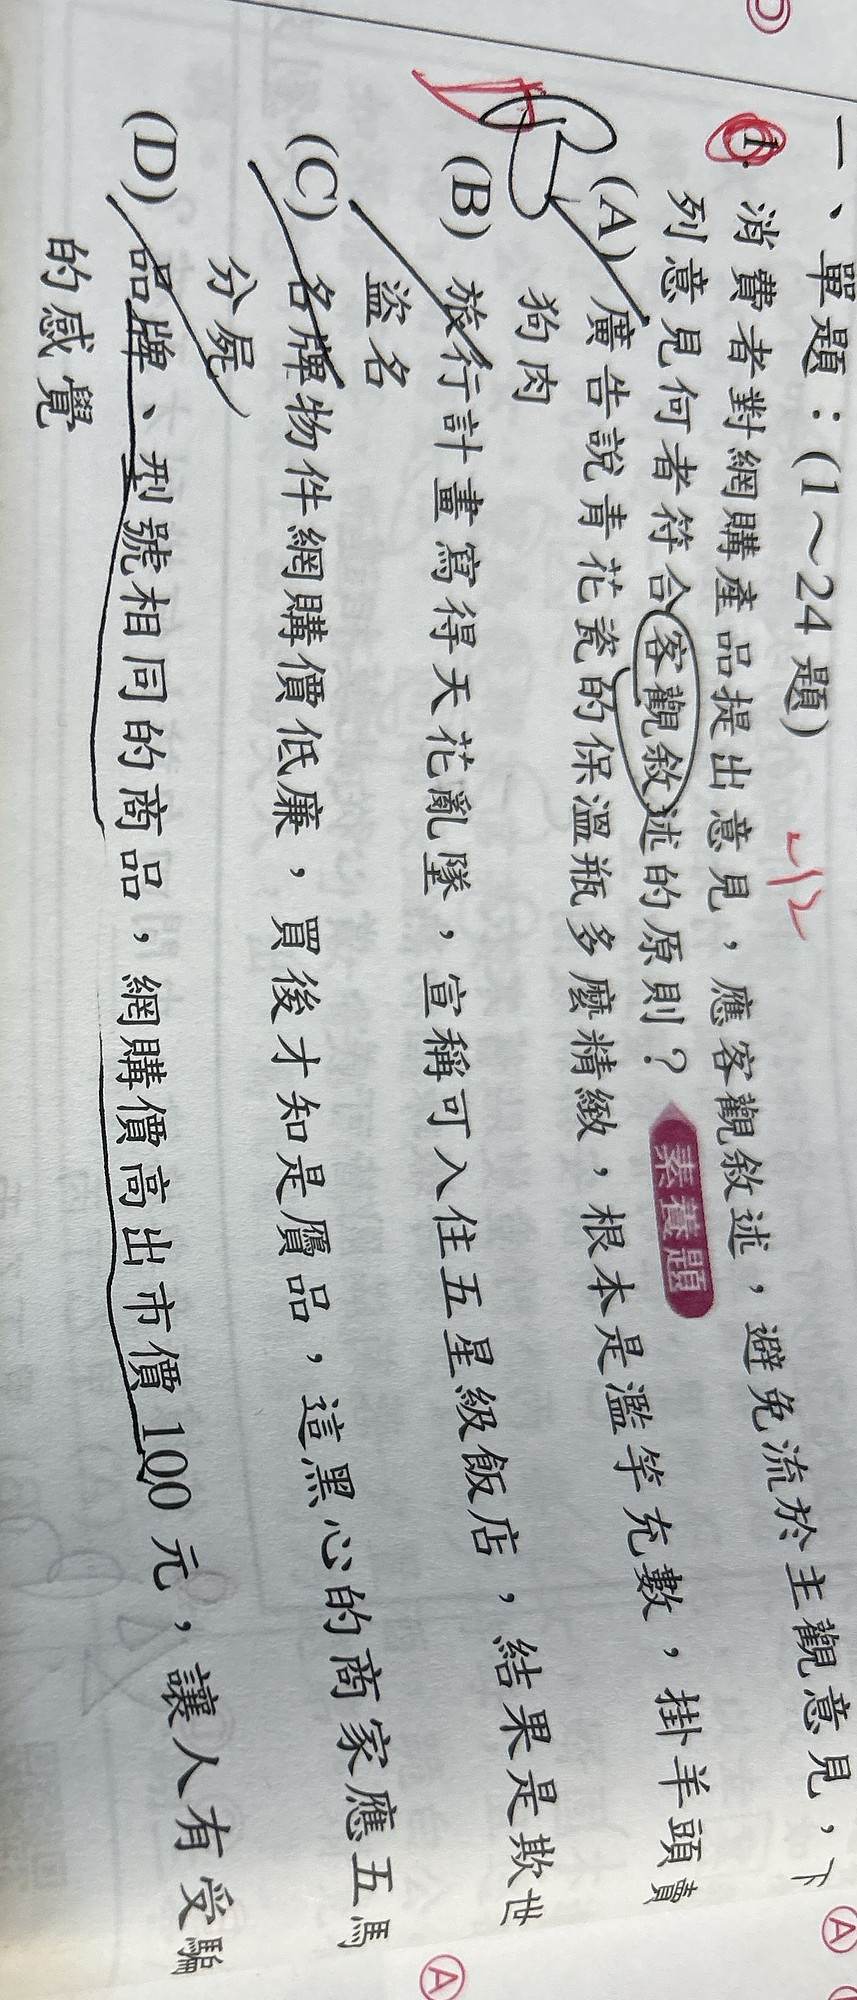 一、單題：(1～24題)
1. 消費者對網購產品提出意見，應客觀敘述，避免流於主觀意見，下
列意見何者符合客觀敘述的原則？ 素養題
(A) 廣告說青花瓷的保溫瓶多麼精緻，根本是濫竽充數，掛羊頭賣
狗肉
(B) 旅行計畫寫得天花亂墜，宣稱可入住五星級飯店，結果是欺世
盜名
(C) 名牌物件網購價低廉，買後才知是贗品，這黑心的商家應五馬
分屍
(D) 品牌、型號相同的商品，網購價高出市價100元，讓人有受騙
的感覺
Ⓐ
Ⓐ